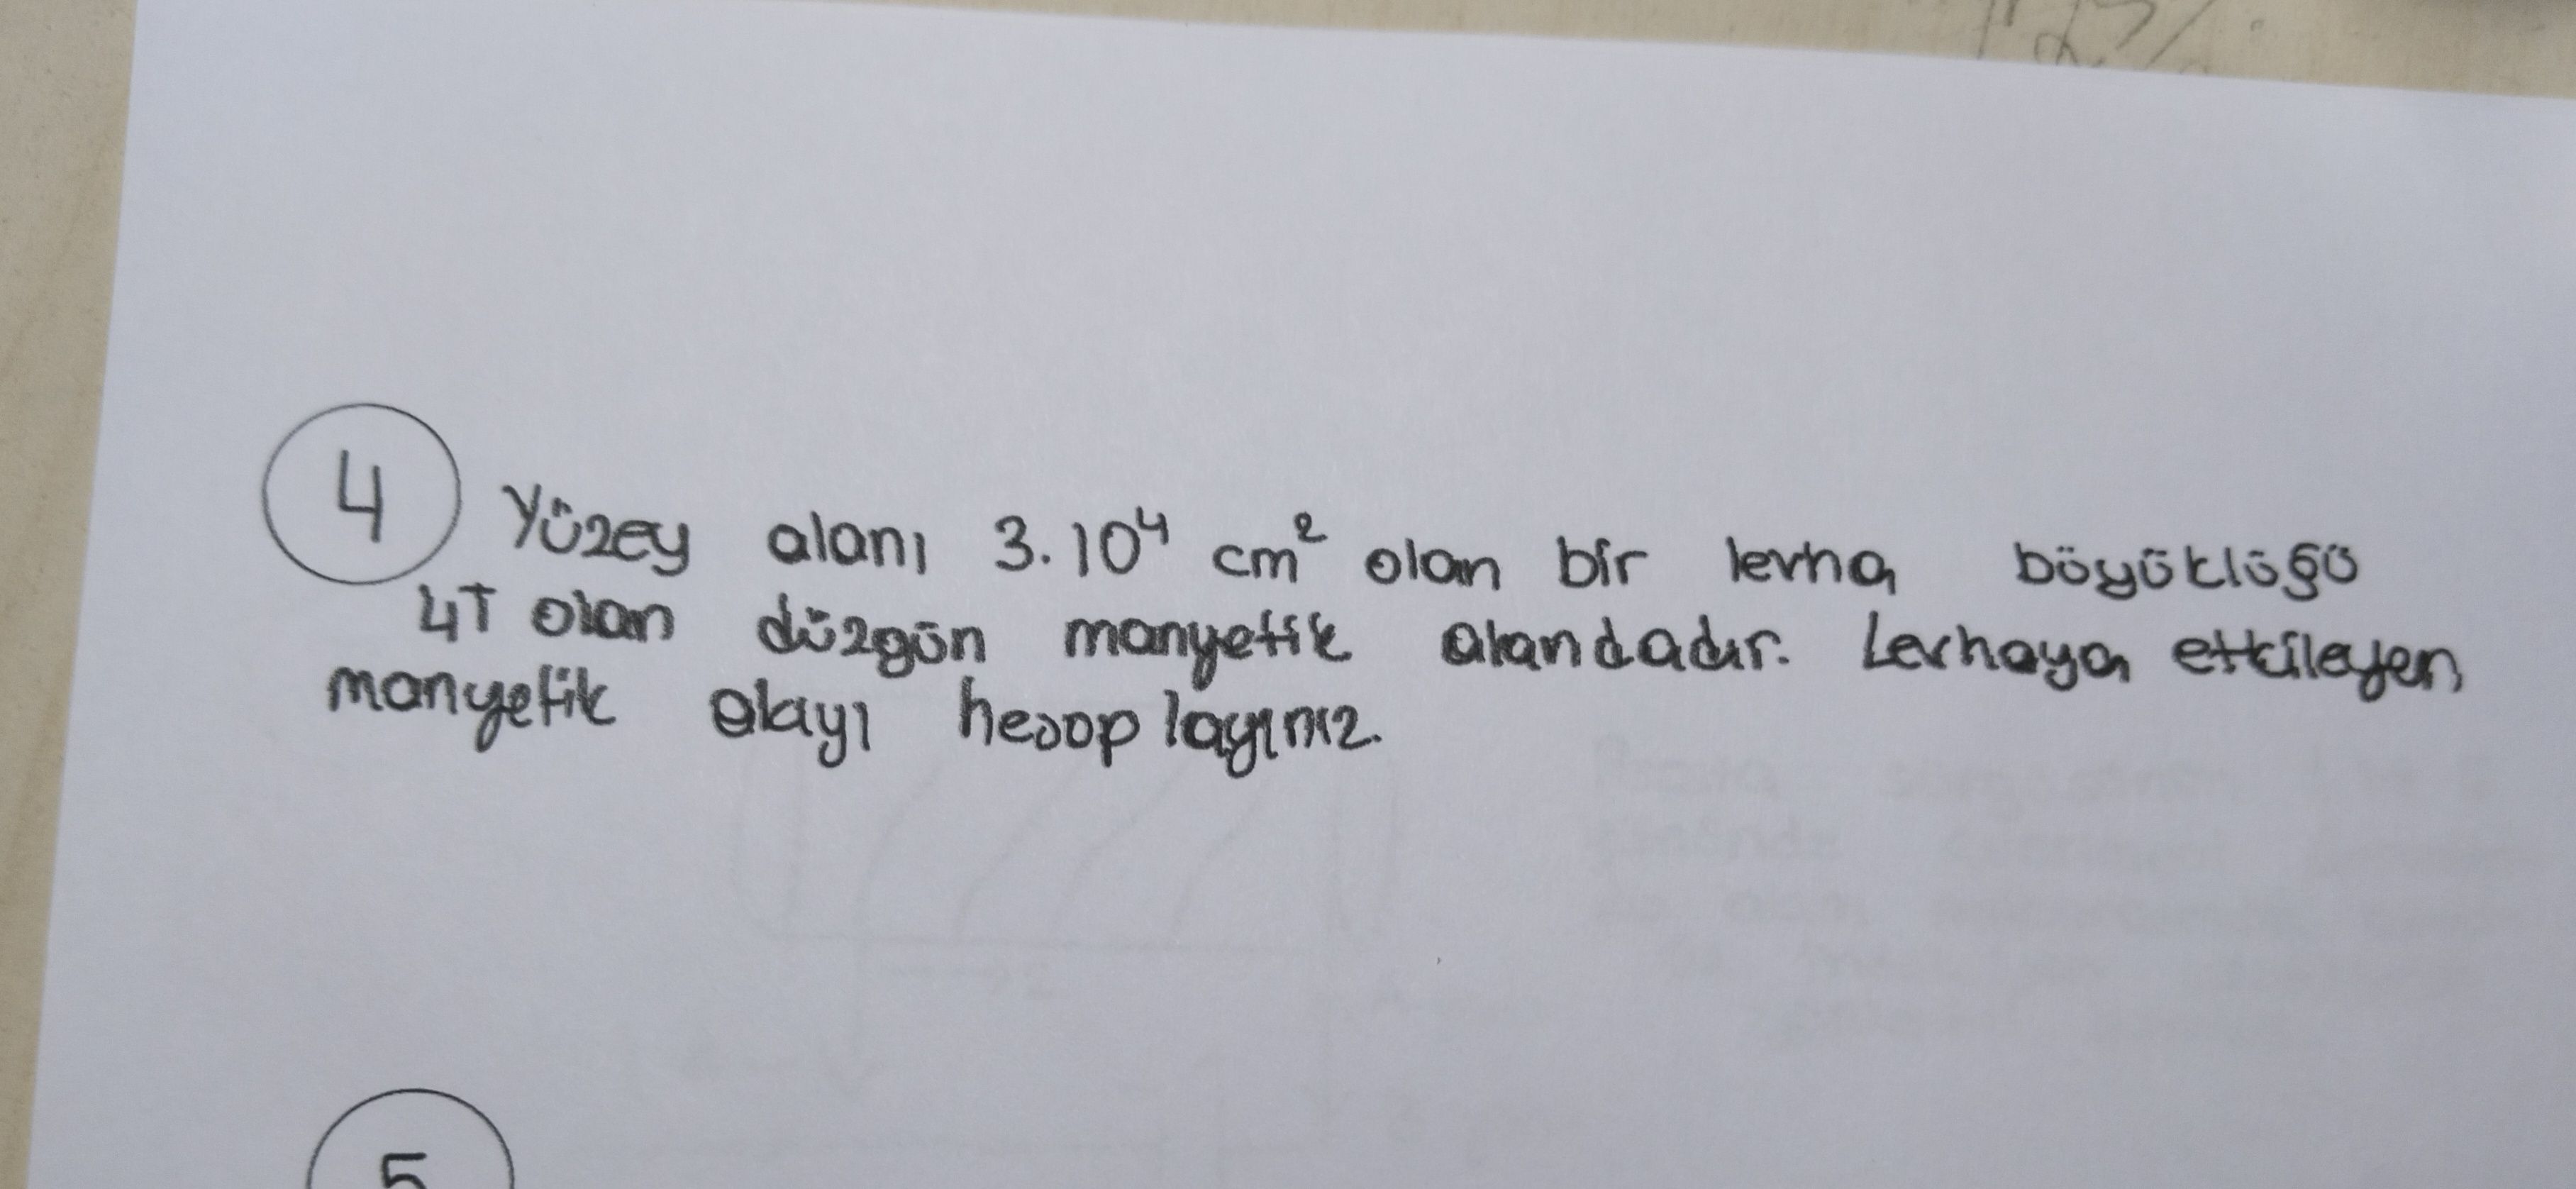 4 Yüzey alanı 3.10⁴ cm² olan bir levha böyüklüğü
4T olan düzgün manyetik alandadır. Levhaya etkileyen
manyetik olayı hesaplayınız.
5